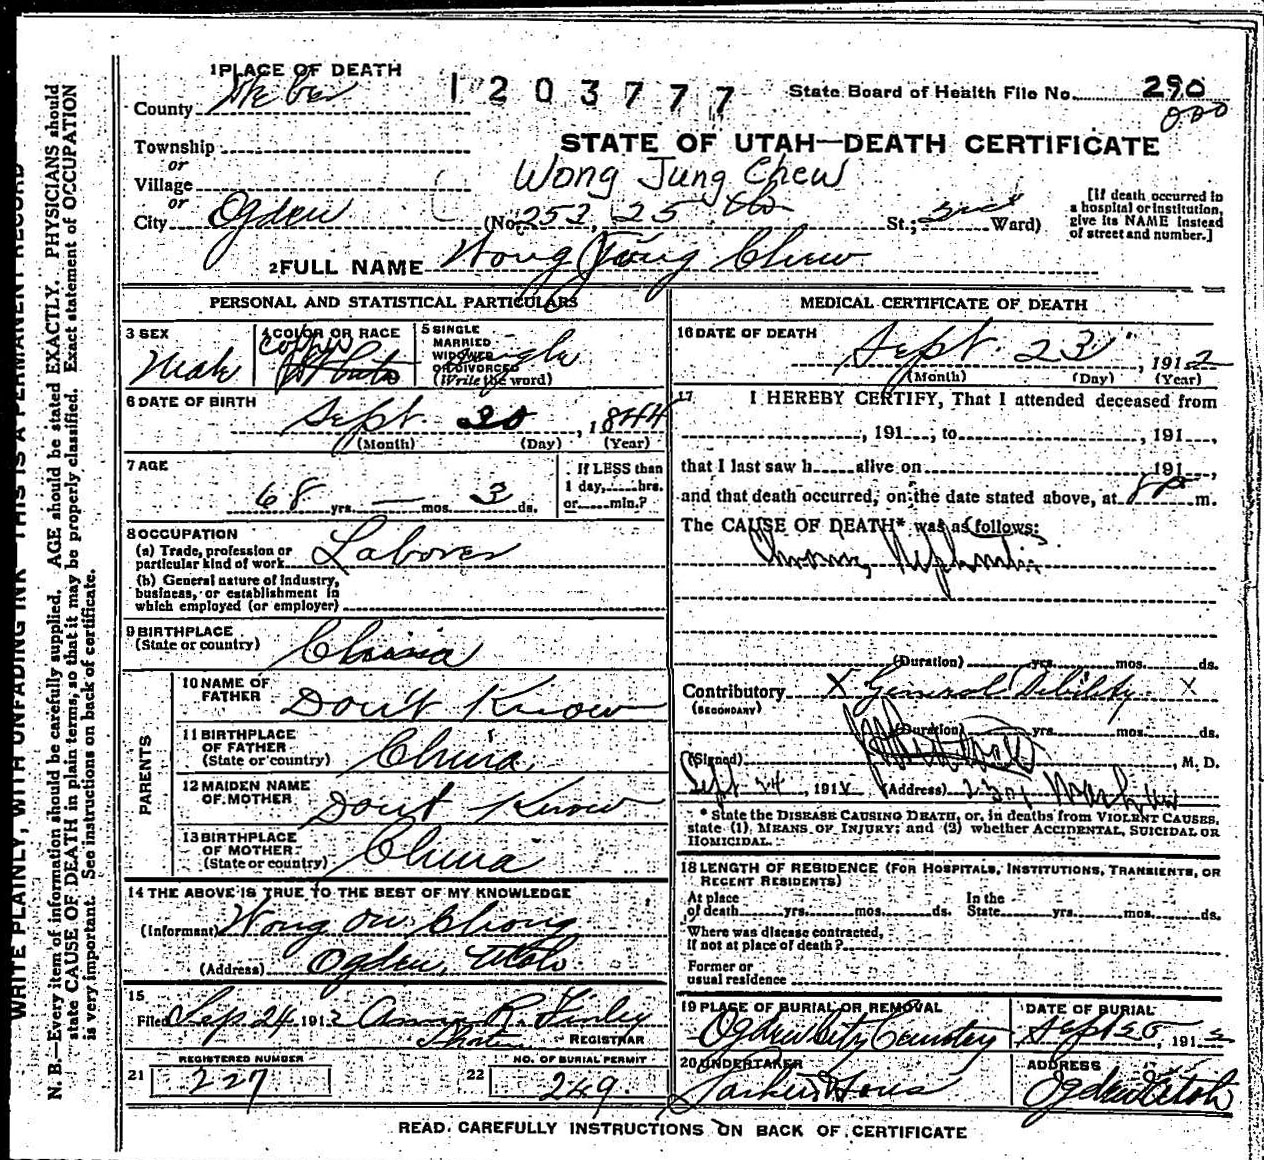 1 PLACE OF DEATH
1203777
State Board of Health File No. 290
000
County Weber
STATE OF UTAH—DEATH CERTIFICATE
Township
or
Village
Wong Jung Chew
or
City Ogden (No. 252, 25 th St.; 3rd Ward)
[If death occurred in
a hospital or institution,
give its NAME instead
of street and number.]
2 FULL NAME Wong Jung Chew
PERSONAL AND STATISTICAL PARTICULARS
3 SEX
Male
4 COLOR OR RACE
White
5 SINGLE
MARRIED
WIDOWED
OR DIVORCED
(Write the word)
Single
6 DATE OF BIRTH
Sept. 20, 1844
(Month) (Day) (Year)
7 AGE
68 yrs. — mos. 3 ds.
If LESS than
1 day, hrs.
or min.?
8 OCCUPATION
(a) Trade, profession or
particular kind of work Laborer
(b) General nature of industry,
business, or establishment in
which employed (or employer)
9 BIRTHPLACE
(State or country) China
PARENTS
10 NAME OF
FATHER Don't Know
11 BIRTHPLACE
OF FATHER
(State or country) China
12 MAIDEN NAME
OF MOTHER Don't Know
13 BIRTHPLACE
OF MOTHER
(State or country) China
14 THE ABOVE IS TRUE TO THE BEST OF MY KNOWLEDGE
(Informant) Wong Chong
(Address) Ogden, Utah
15
Filed Sep 24 1912 R. Finley
REGISTRAR
REGISTERED NUMBER
21 227
NO. OF BURIAL PERMIT
22 249
MEDICAL CERTIFICATE OF DEATH
16 DATE OF DEATH
Sept. 23, 1912
(Month) (Day) (Year)
17 I HEREBY CERTIFY, That I attended deceased from
, 191 , to , 191 ,
that I last saw h alive on 191 ,
and that death occurred, on the date stated above, at 8 P m.
The CAUSE OF DEATH* was as follows:
Chronic Nephritis
(Duration) yrs. mos. ds.
Contributory X General Debility X
(SECONDARY)
(Duration) yrs. mos. ds.
(Signed) , M. D.
Sept 24, 191 (Address) Wash
* State the DISEASE CAUSING DEATH, or, in deaths from VIOLENT CAUSES,
state (1) MEANS OF INJURY; and (2) whether ACCIDENTAL, SUICIDAL OR
HOMICIDAL.
18 LENGTH OF RESIDENCE (FOR HOSPITALS, INSTITUTIONS, TRANSIENTS, OR
RECENT RESIDENTS)
At place
of death yrs. mos. ds.
In the
State yrs. mos. ds.
Where was disease contracted,
if not at place of death?
Former or
usual residence
19 PLACE OF BURIAL OR REMOVAL
Ogden City Cemetery
DATE OF BURIAL
Sept 25, 1912
20 UNDERTAKER
ADDRESS
Ogden Utah
READ CAREFULLY INSTRUCTIONS ON BACK OF CERTIFICATE
WRITE PLAINLY, WITH UNFADING INK—THIS IS A PERMANENT RECORD
N. B.—Every item of information should be carefully supplied. AGE should be stated EXACTLY. PHYSICIANS should
state CAUSE OF DEATH in plain terms, so that it may be properly classified. Exact statement of OCCUPATION
is very important. See instructions on back of certificate.